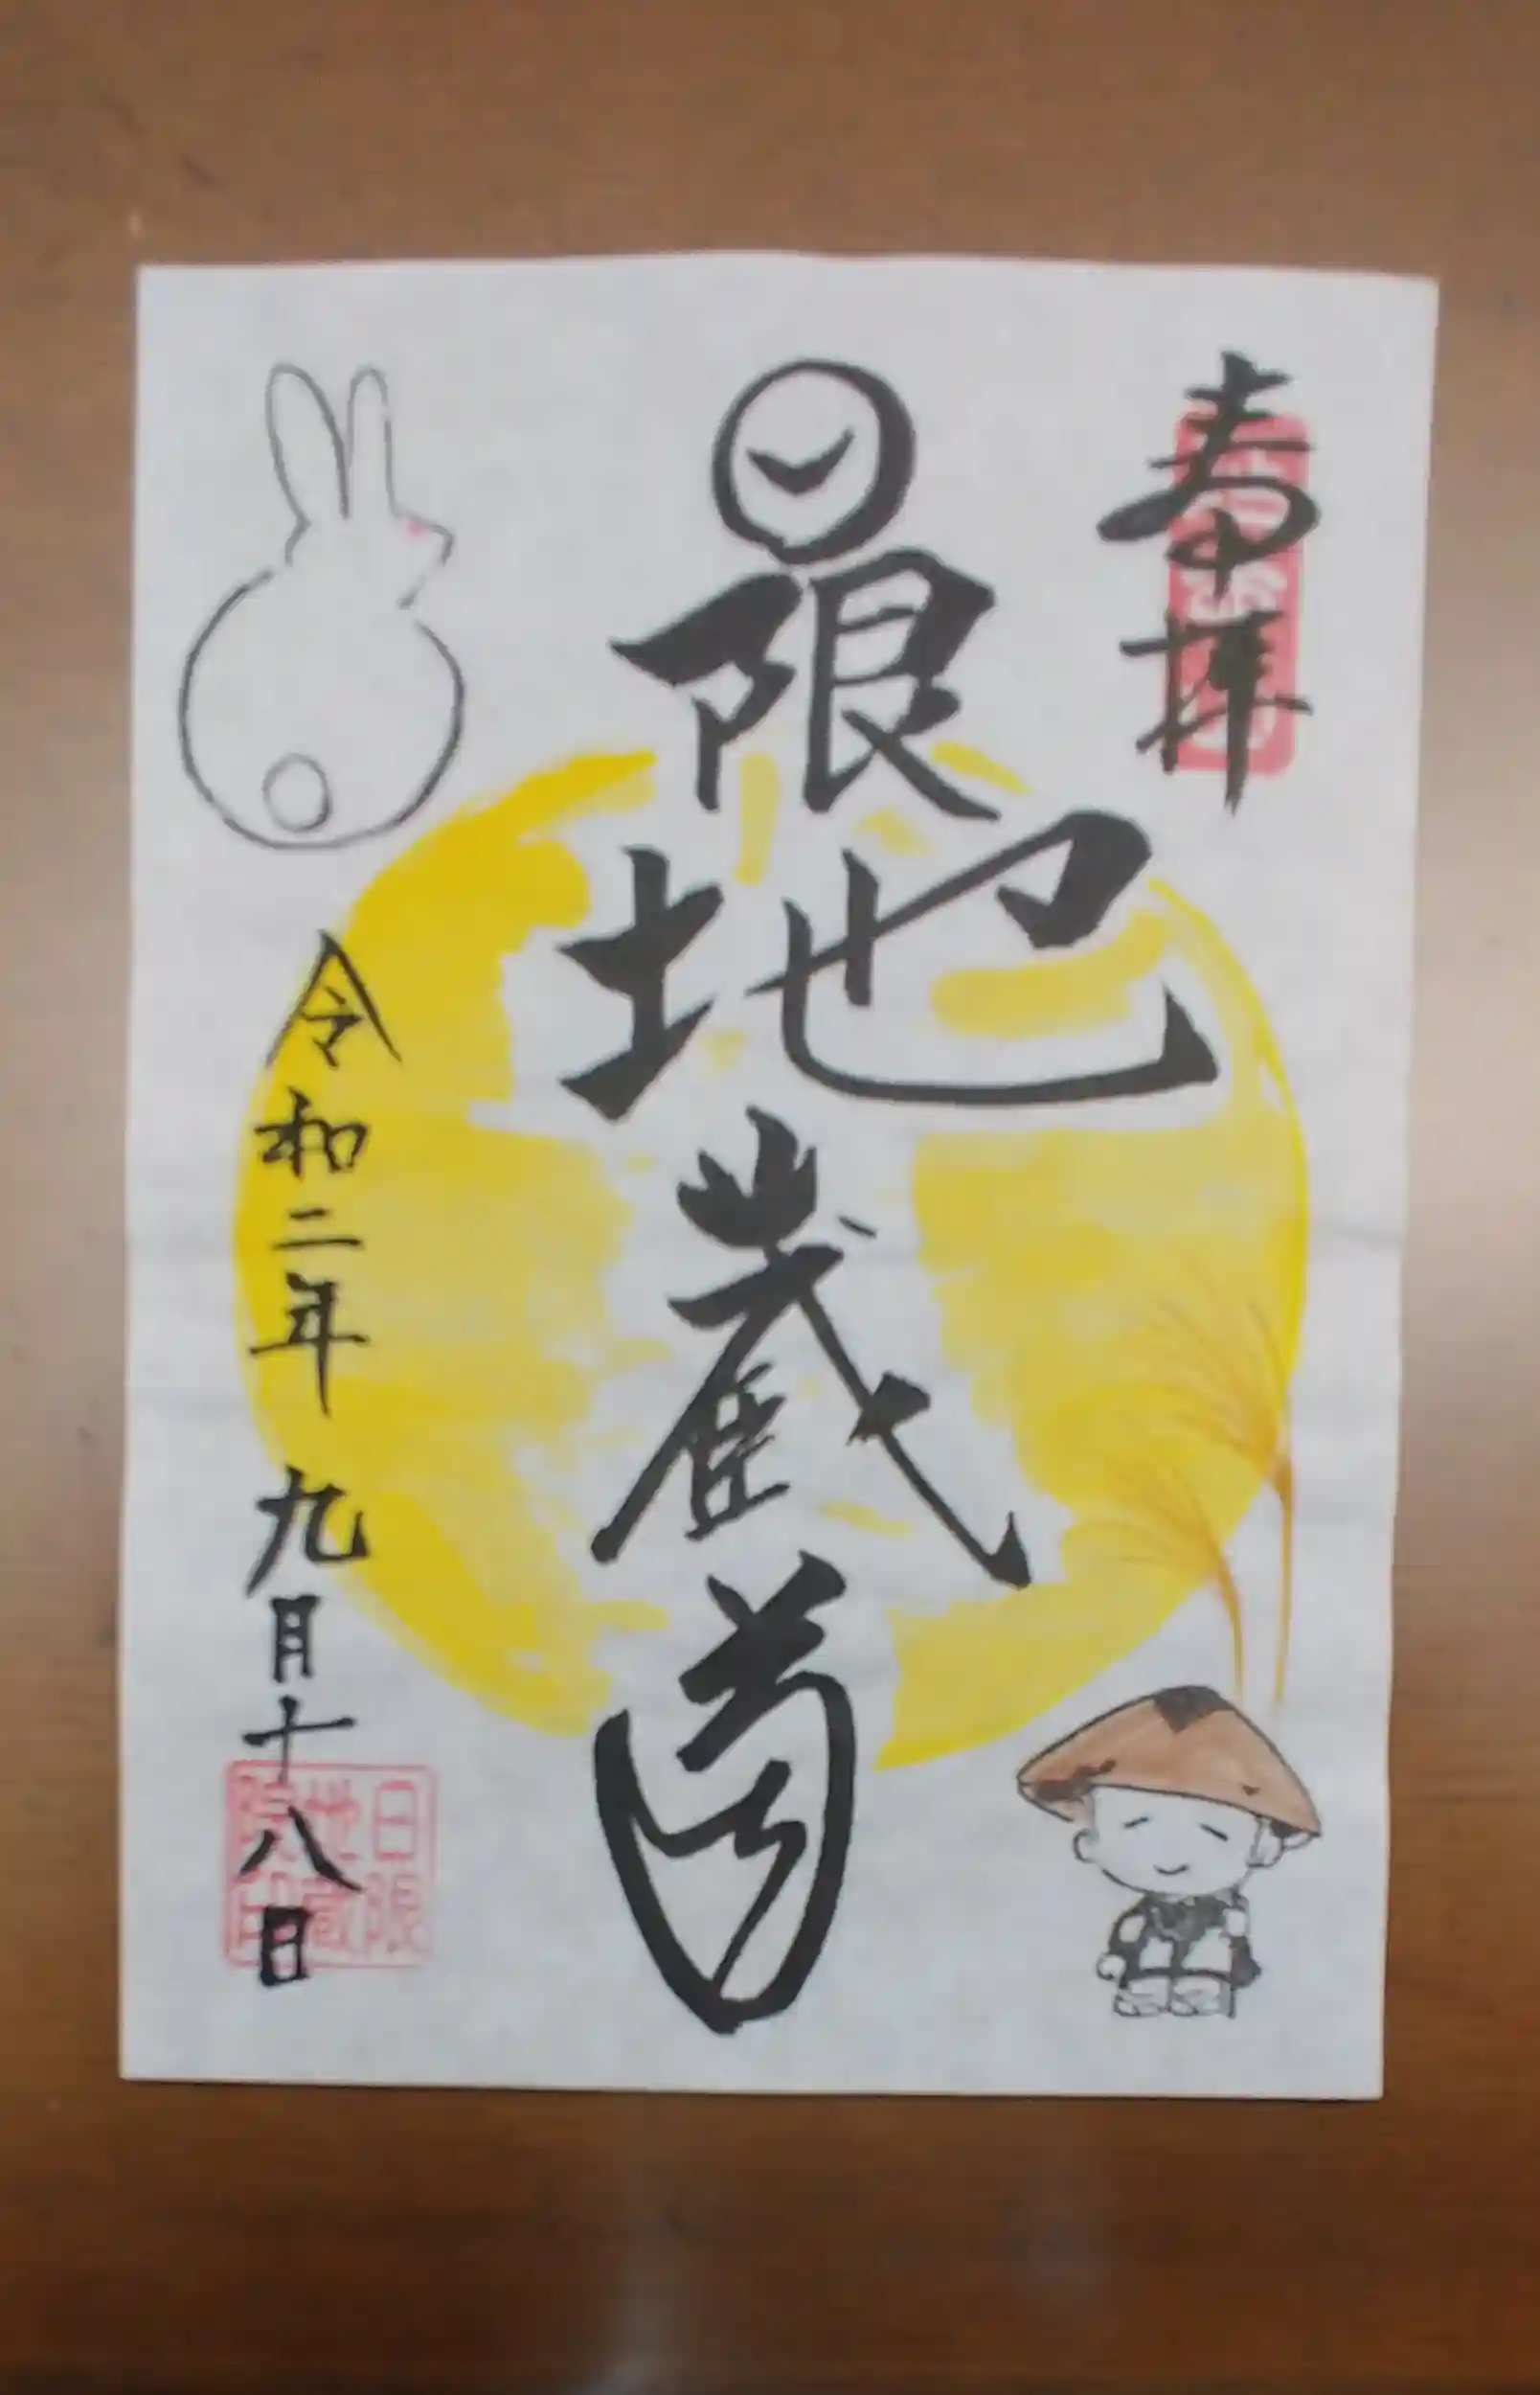 奉拝
日限地蔵尊
令和二年 九月十八日
日限
地蔵